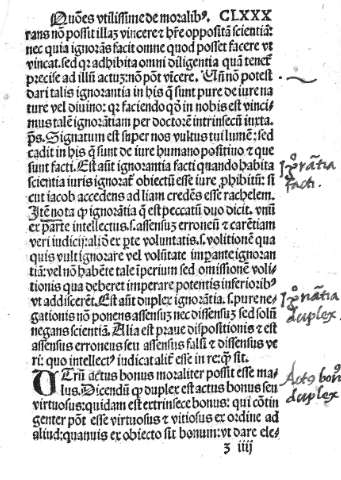 Quões vtilissime de moralibꝰ. CLXXX
rans nõ possit illaʒ vincere ⁊ hr̃e oppositã scientiã:
nec quia ignorãs facit omne quod posset facere vt
vincat. sed qꝛ adhibita omni diligentia quã tenet̃
precise ad illũ actuʒ: nõ põt vĩcere. Nũ nõ potest
dari talis ignorantia in his q̃ sunt pure de iure na
ture vel diuino: qꝛ faciendo qð in nobis est vinci
mus talẽ ignorãtiam per doctorẽ intrinsecũ iuxta.
p̃s. Signatum est super nos vultus tui lumẽ: sed
cadit in his q̃ sunt de iure humano positiuo ⁊ que
sunt facti. Est aũt ignorantia facti quando habita
scientia iuris ignorat̃ obiectũ esse iure ꝓhibitũ: si
cut iacob accedens ad liam credẽs esse rachelem.
Itẽ nota ꝙ ignorãtia q̃ est peccatũ duo dicit. vnũ
ex parte intellectus. s. assensuʒ erroneũ ⁊ carẽtiam
veri iudicij: aliõ ex ꝑte voluntatis. s. volitionẽ qua
quis vult ignorare vel volũtate imꝑante ignoran
tiã: vel nõ habẽte talẽ ĩperium sed omissionẽ voli-
tionis qua deberet imperare potentis inferioribꝰ
vt addiscerẽt. Est aũt duplex ignorãtia. s. pure ne-
gationis nõ ponens assensuʒ nec dissensuʒ sed solũ
negans scientiã. Alia est praue dispositionis ⁊ est
assensus erroneus seu assensus falsũ ⁊ dissensus ve
ri: quo intellectꝰ iudicat alit̃ esse in re: q̃ sit.
UTrũ actus bonus moraliter possit esse ma-
lus. Dicendũ ꝙ duplex est actus bonus seu
virtuosus: quidam est extrinsece bonus: qui cõtin
genter põt esse virtuosus ⁊ vitiosus ex ordine ad
aliud: quamuis ex obiecto sit bonum: vt dare ele-
ʒ iiij
Igrãtia
facti.
Igñãtia
duplex.
Actꝰ bonꝰ
duplex